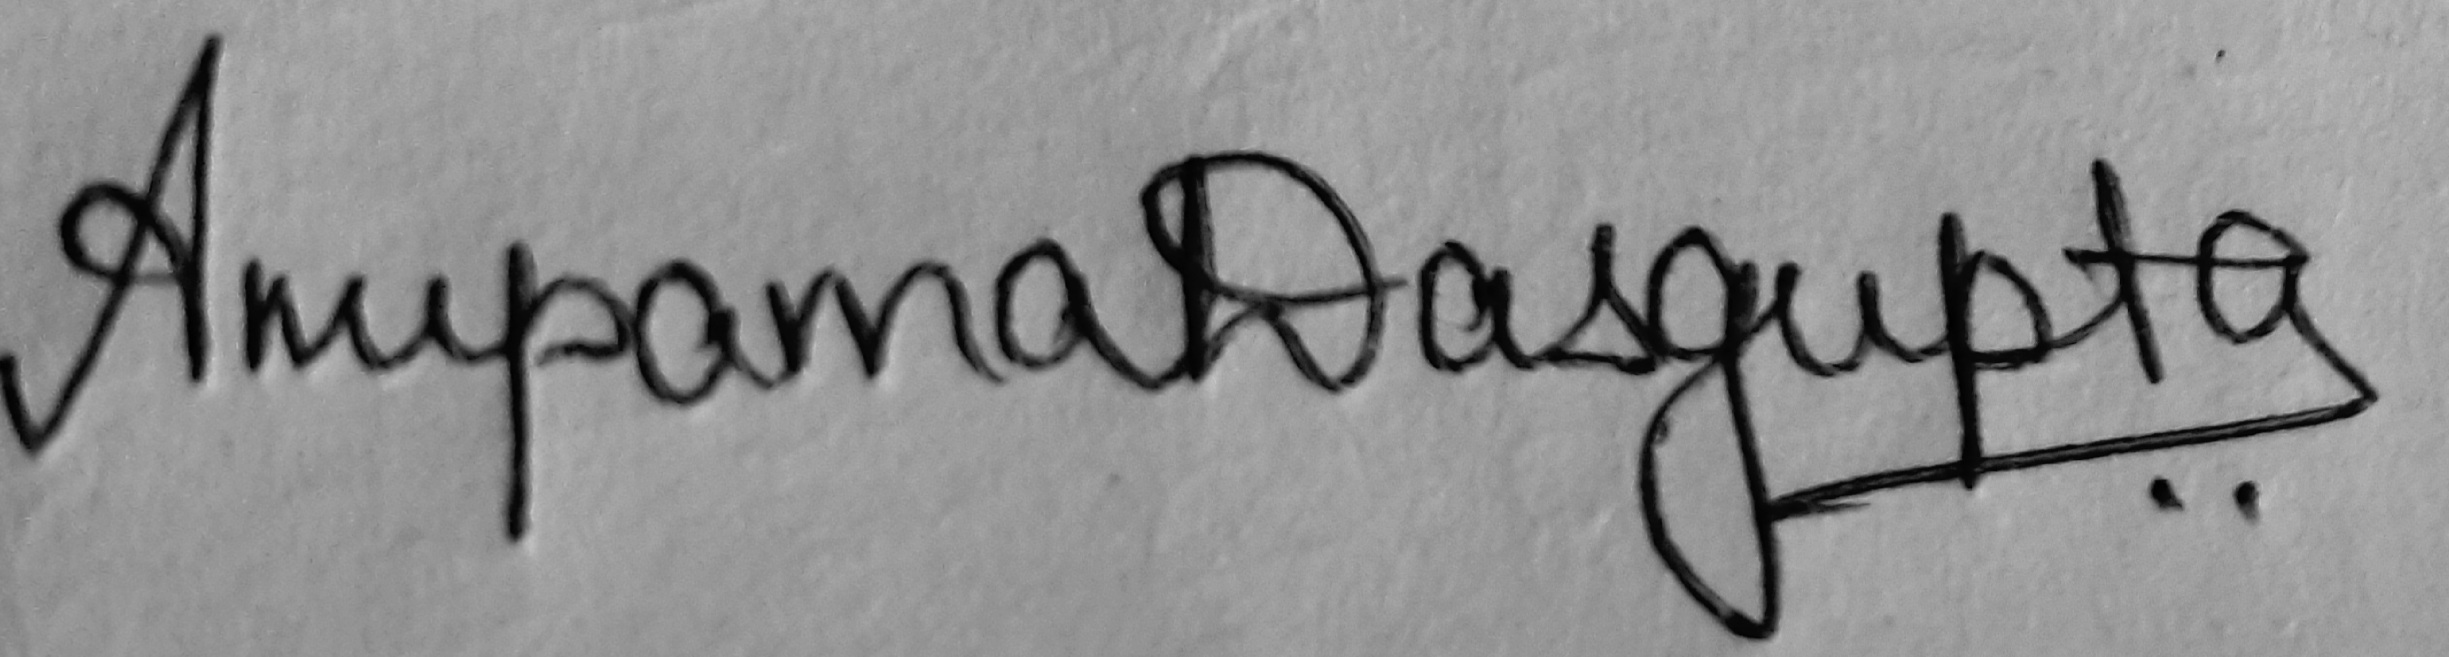 Anupama Dasgupta